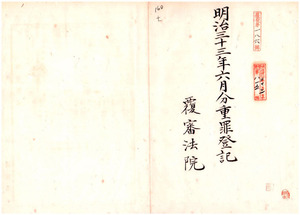 明治三十三年六月分重罪登記
覆審法院